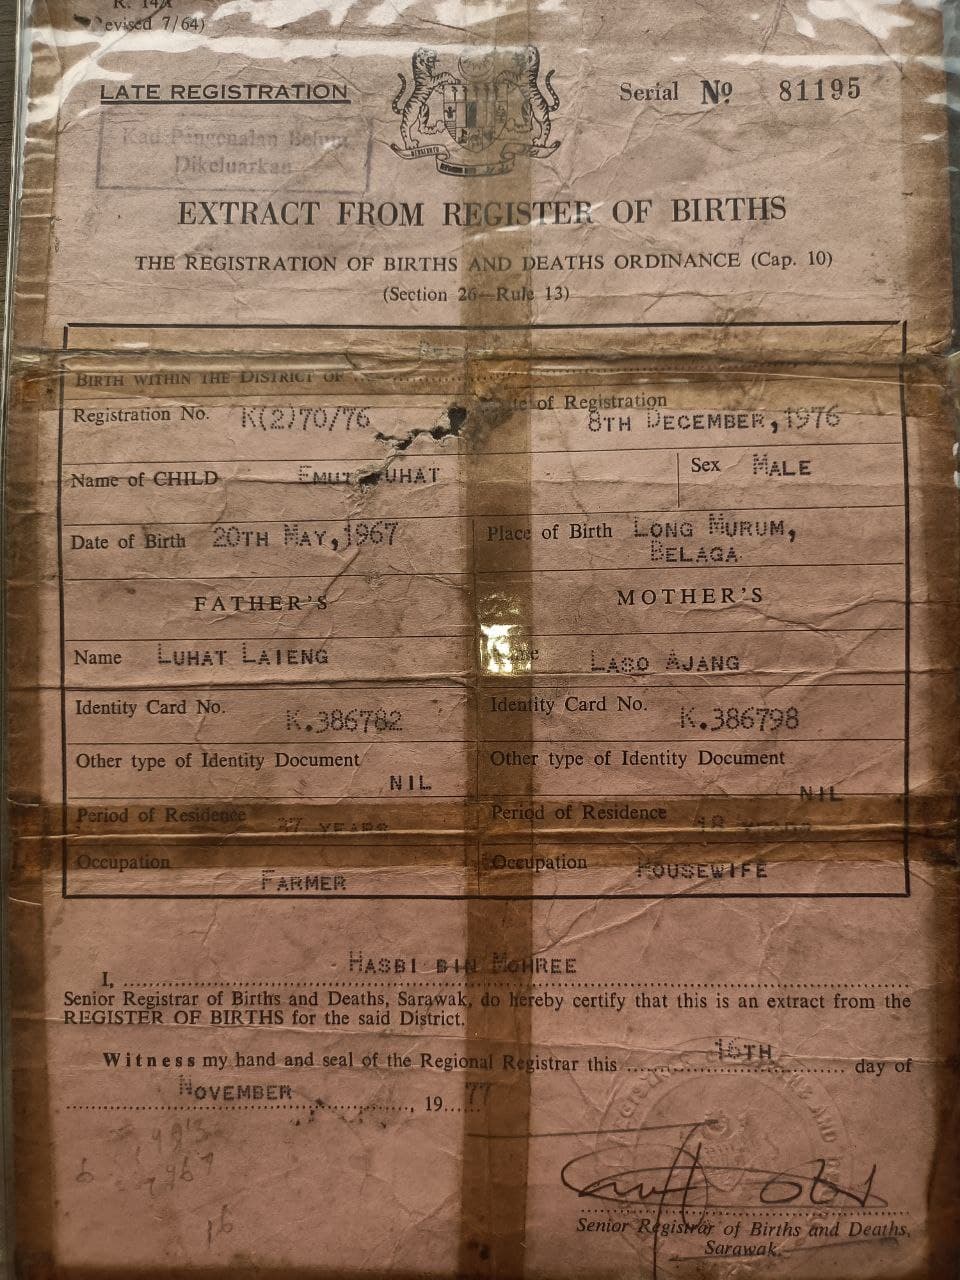 R. 14A
evised 7/64)
LATE REGISTRATION
Serial Nº 81195
Kad Pengenalan Belum
Dikeluarkan
EXTRACT FROM REGISTER OF BIRTHS
THE REGISTRATION OF BIRTHS AND DEATHS ORDINANCE (Cap. 10)
(Section 26—Rule 13)
BIRTH WITHIN THE DISTRICT OF
Registration No. K(2)70/76 of Registration 8TH DECEMBER, 1976
Name of CHILD EMUT UHAT Sex MALE
Date of Birth 20TH MAY, 1967 Place of Birth LONG MURUM,
BELAGA.
FATHER'S MOTHER'S
Name LUHAT LAIENG LASO AJANG
Identity Card No. K.386782 Identity Card No. K.386798
Other type of Identity Document NIL Other type of Identity Document NIL
Period of Residence 37 YEARS Period of Residence 18 YEARS
Occupation FARMER Occupation HOUSEWIFE
I, HASBI BIN MOHREE
Senior Registrar of Births and Deaths, Sarawak, do hereby certify that this is an extract from the
REGISTER OF BIRTHS for the said District.
Witness my hand and seal of the Regional Registrar this 16TH day of
NOVEMBER, 1977
Senior Registrar of Births and Deaths,
Sarawak.